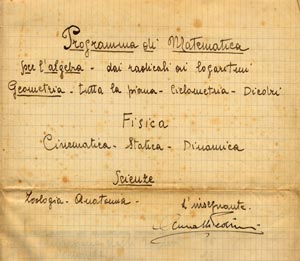 Programma di Matematica
per l'algebra - dai radicali ai logaritmi
Geometria - tutta la piana - Ciclometria - Diedri
Fisica
Cinematica - Statica - Dinamica
Scienze
Zoologia - Anatomia -
L'insegnante